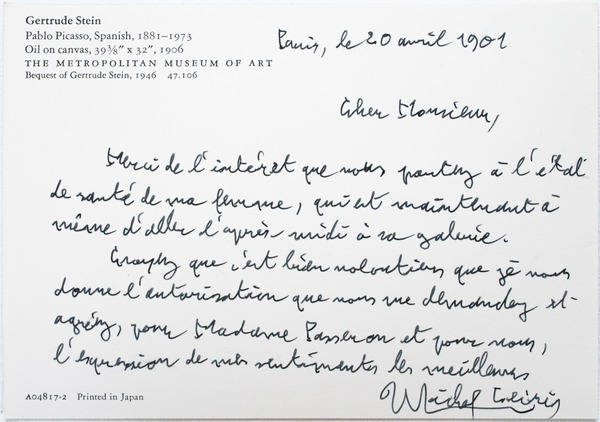 Gertrude Stein
Pablo Picasso, Spanish, 1881–1973
Oil on canvas, 39⅜" x 32", 1906
THE METROPOLITAN MUSEUM OF ART
Bequest of Gertrude Stein, 1946 47.106
Paris, le 20 avril 1901
Cher Monsieur,
Merci de l'intérêt que vous portez à l'état
de santé de ma femme, qui est maintenant à
même d'aller l'après-midi à sa galerie.
Croyez que c'est bien volontiers que je vous
donne l'autorisation que vous me demandez et
agréez, pour Madame Passeron et pour vous,
l'expression de mes sentiments les meilleurs
Michel Leiris
A04817-2 Printed in Japan